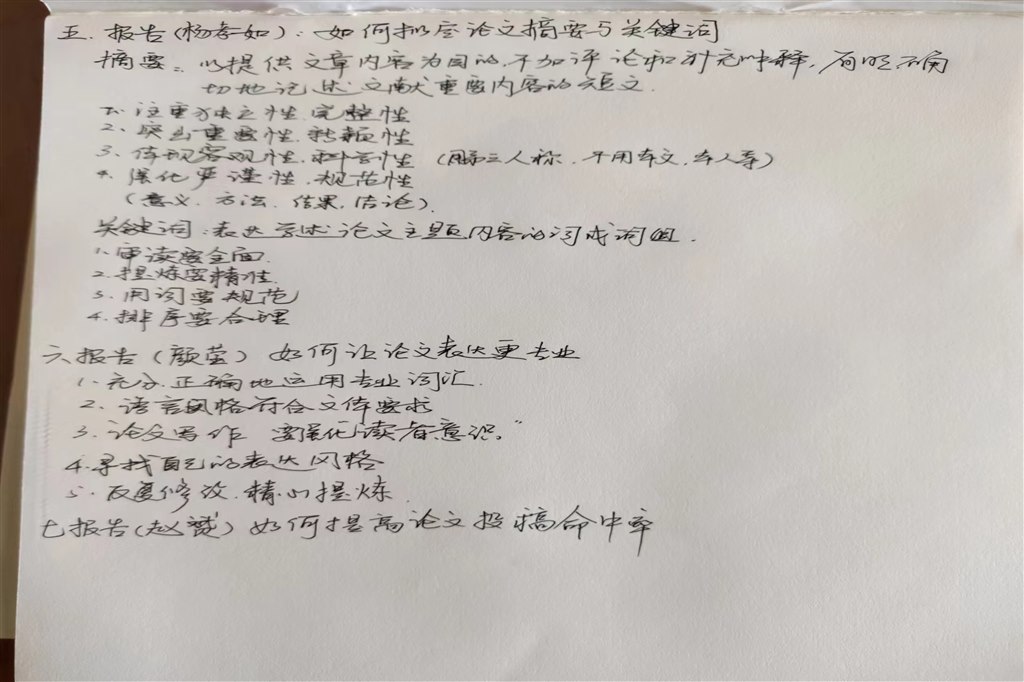 五. 报告(杨孝如): 如何拟定论文摘要与关键词
摘要: 以提供文章内容为目的, 不加评论和补充解释, 简明确
切地记述文献重要内容的短文.
1. 注重独立性.完整性
2、突出重要性.新颖性
3、体现客观性.科学性 (用第三人称. 不用本文, 本人等)
4. 强化严谨性.规范性
(意义. 方法. 结果. 结论).
关键词: 表达学术论文主题内容的词或词组.
1. 审读要全面.
2. 提炼要精准.
3. 用词要规范
4. 排序要合理
六报告(颜莹) 如何让论文表达更专业
1. 充分.正确地运用专业词汇.
2. 语言风格符合文体要求
3. 论文写作 要强化"读者意识."
4. 寻找自己的表达风格
5. 反复修改.精心提炼.
七报告(赵赟) 如何提高论文投稿命中率